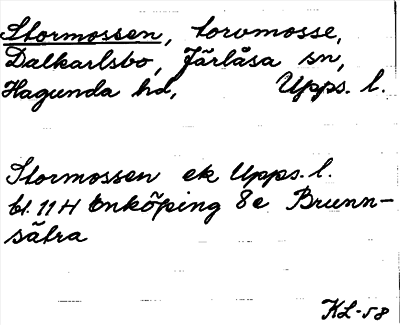 Stormossen, torvmosse,
Dalkarlsbo, Järlåsa sn,
Hagunda hd, Upps. l.
Stormossen ek Upps. l.
bl. 11H Enköping 8e Brunn-
sätra
KL-58